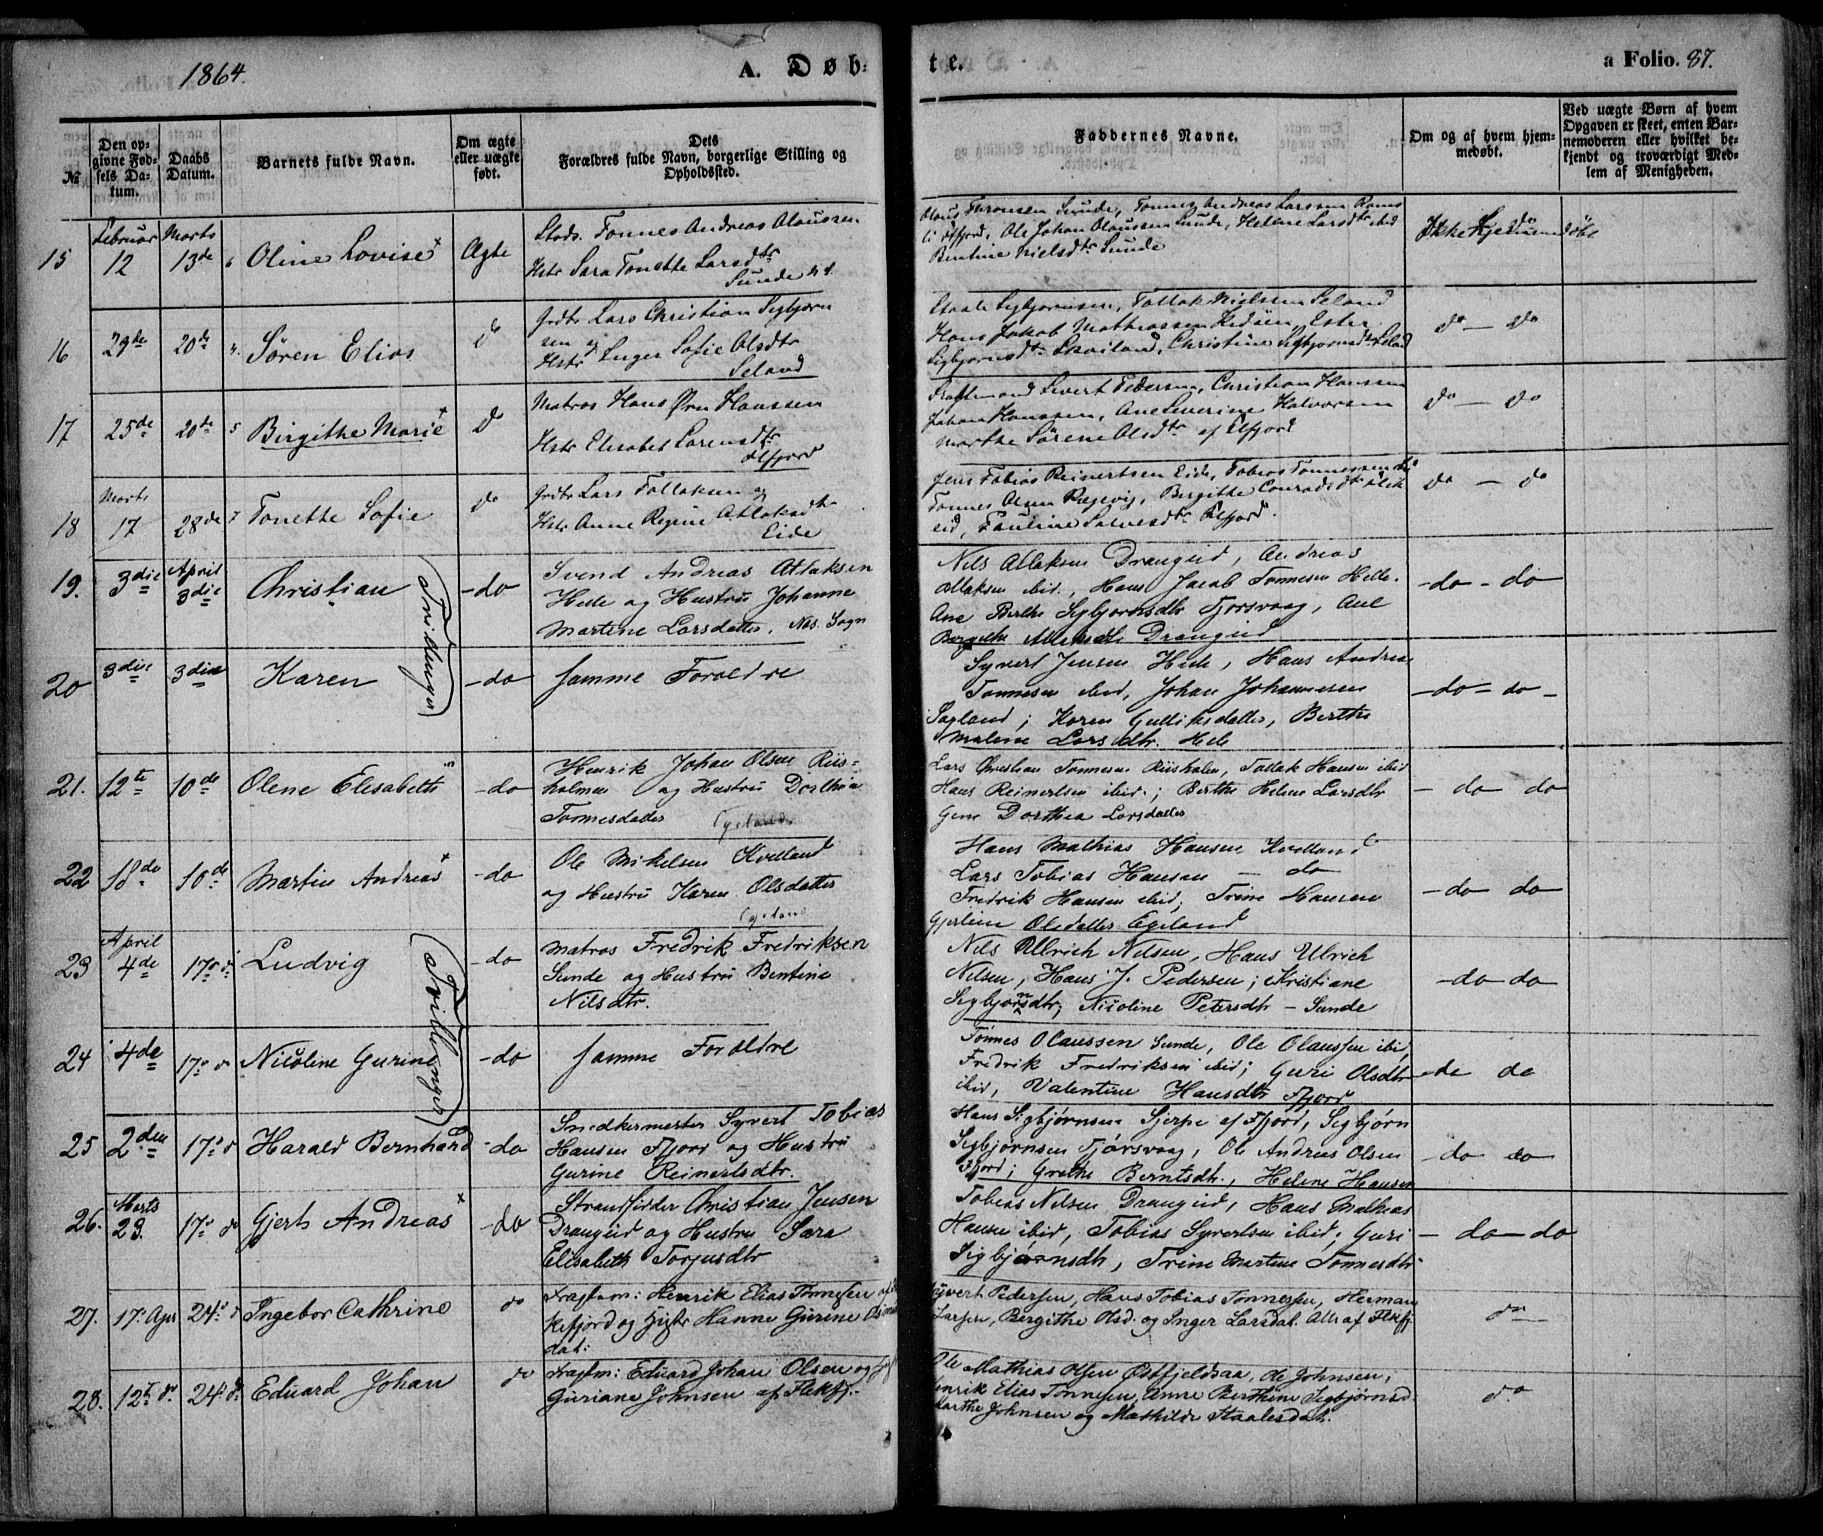 1864.
A. Døb-
te.
a Folio. 87.
№
Den op-
givne Fød-
sels Da-
tum.
Daabs
Datum.
Barnets fulde Navn.
Om ægte
eller uægte
født.
Dets
Forældres fulde Navn, borgerlige Stilling og
Opholdssted.
Faddernes Navne.
Om og af hvem hjem-
medøbt.
Ved uægte Børn af hvem
Opgaven er skeet, enten Bar-
nemoderen eller hvilket be-
kjendt og troværdigt Med-
lem af Menigheden.
15
Februar
12
Marts
13de
Oline Lovise
Ægte
Tønnes Andreas Olaussen
Hstr Sara Tonette Larsdtr
Sunde
Sunde, Tønnes Andreas Larssen
Ole Johan Olaussen Sunde, Helene Larsdtr ibid
Bentine Nielsdtr Sunde
Ikke Hjemmedøbt
16
29de
20de
Søren Elias
do
Lars Christian Sigbjørn
sen og
Hstr Inger Sofie Olsdtr
Seland
Staale Sigbjørnsen, Tollak Nielssen Seland
Hans Jakob Mathiassen, Ester
Sigbjørnsdtr, Christine Sigbjørnsdtr Seland
do — do
17
25de
20de
5
Birgithe Marie
do
Matros Hans Ørn Hanssen
Hstr Elisabet Larensdtr
Flfjord
Sivert Pedersen, Christian Hanssen
Johan Hanssen, Ane Severine Halvorsen
Marthe Sørene Olsdtr af Flfjord
do — do
18
Marts
17
28de
Tonette Sofie
do
Lars Tollaksen og
Hstr. Anne Regine Atlaksdtr
Eide
Jens Tobias Reinertsen Eide, Tobias Tønnessen
Tønnes Olsen, Birgithe Conradsdtr
Pauline Salvesdtr Flfjord.
do — do
19.
3die
April
3die
Christian
(Tvillinger)
-do
Svend Andreas Atlaksen
Hele og Hustru Johanne
Martine Larsdatter. Nes Sogn
Nils Atlaksen Drangeid, Andreas
Atlaksen ibid., Hans Jacob Tønnesen Hele.
Ane Berthe Sigbjørnsdtr Tjorsvaag, Ane
Bergithe Drangeid
-do - do
20
3die
3die
Karen
-do
samme Forældre
Syvert Jensen Hele, Hans Andreas
Tønnesen ibid, Johan Johannesen
Sagland; Karen Gulliksdatter, Berthe
Malene Larsdtr. Hele
-do - do-
21.
12te
10de
Olene Elisabeth
-do
Henrik Johan Olsen Riis-
holmen og Hustru Dorthea
Tønnesdatter
Lars Christian Tønnesen Riisholm, Tollak Hansen ibid
Hans Reinertsen ibid.; Berthe Helene Larsdtr
Dorthea Larsdatter
- do do
22
18de
10de
Martin Andreas
-do
Ole Mikelsen Kvelland
og Hustru Karen Olsdatter
Hans Mathias Hansen Kvelland
Lars Tobias Hansen — do
Fredrik Hansen ibid; Trine Hansen
Olsdatter Egeland
-do do
23
April
4de
17de
Ludvig
(Tvillinger)
-do
Matros Fredrik Fredriksen
Sunde og Hustru Bentine
Nilsdtr.
Nils Ulbrich Nilsen, Hans Ulrich
Nilsen, Hans J. Pedersen; Kristiane
Sigbjørnsdtr; Nicoline Petersdtr - Sunde
-do do
24
4de
17de
Nicoline Gurine
-do
samme Forældre
Tønnes Olaussen Sunde, Ole Olaussen ibid,
Fredrik Fredriksen ibid; Guri Olsdtr
ibid, Valentine Hansdtr Ffjord
-do do
25
2den
17de
Harald Bernhard
-do
Snedkermester Syvert Tobias
Hansen Ffjord og Hustru
Gurine Reinertsdtr.
Hans Sigbjørnsen Sjerpe af Ffjord, Sigbjørn
Sigbjørnsen Tjørsvaag, Ole Andreas Olsen
Ffjord; Grethe Berntsdtr., Helene Hansen
-do do
26.
Marts
23.
17de
Gjert Andreas
-do
Strandsidder Christian Jensen
Drangeid og Hustru Sara
Elisabeth Torjusdtr
Tobias Nilsen Drangeid, Hans Mathias
Hansen ibid, Tobias Syvertsen ibid; Guri
Sigbjørnsdtr, Trine Martine Tønnesdtr
- do - do
27.
17. Apr
24de
Ingebor Cathrine
do
Fragtm: Henrik Elias Tønnesen af Fle
kefjord og Hustr Hanne Gurine
dat:
Syvert Pedersen, Hans Tobias Tønnessen, Herman
Larsen, Bergithe Olsd. og Inger Larsdat. Alle af Flekfj.
do
28.
12te do
24de
Eduard Johan
do
Fragtm: Eduard Johan Olsen og
Guriane Johnsen af Flekfj.
Ole Mathias Olsen Østfjeldsaa, Ole Johnsen,
Henrik Elias Tønnesen, Anne Berthine Sigbjørnsd.
Marthe Johnsen og Mathilde Staalesdat.
do